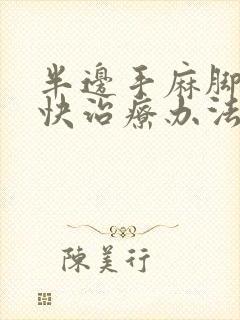 半邊手麻脚
快治療办法
陳美行